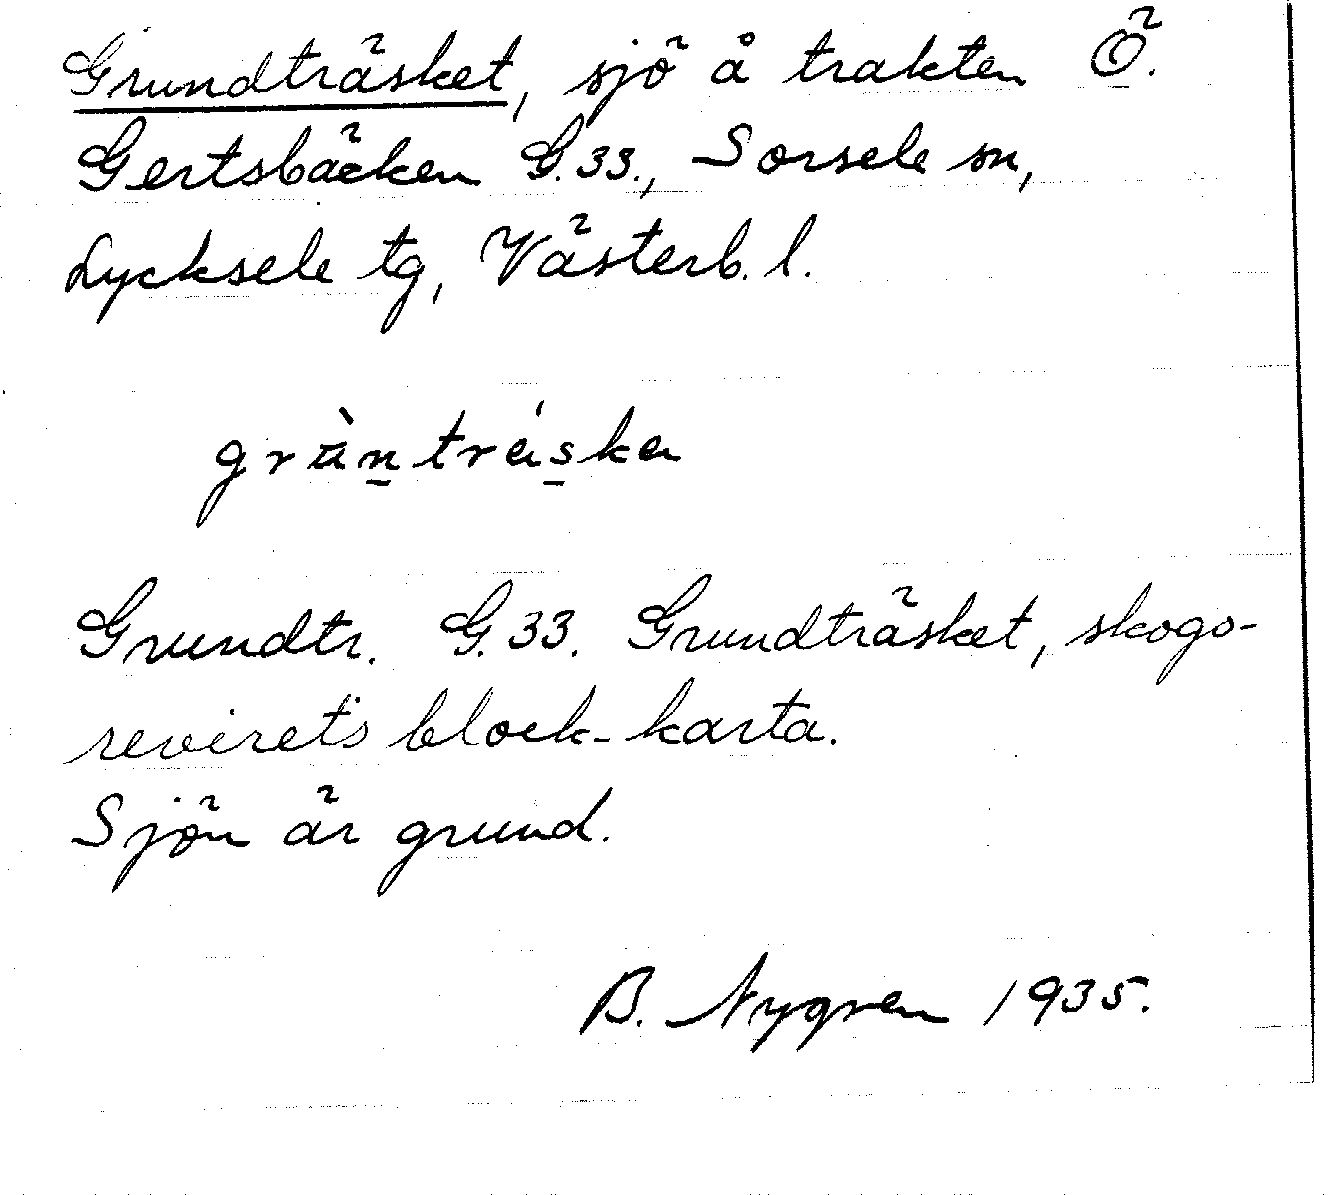 Grundträsket, sjö å trakten Ö.
Gertsbäcken G.33., Sorsele sn,
Lycksele tg, Västerb. l.
grùntréska
Grundtr. G.33. Grundträsket, skogs-
revirets block-karta.
Sjön är grund.
B. Nygren 1935.